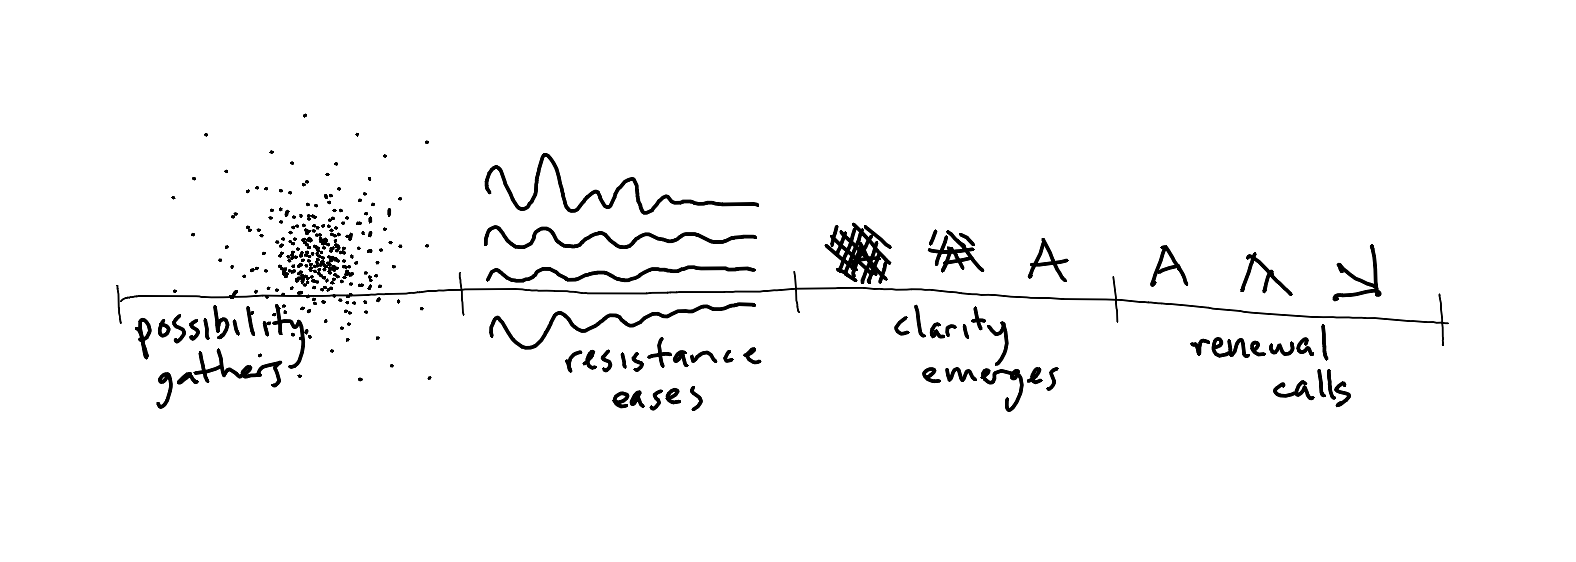 A A
possibility
gathers
resistance
eases
clarity
emerges
renewal
calls